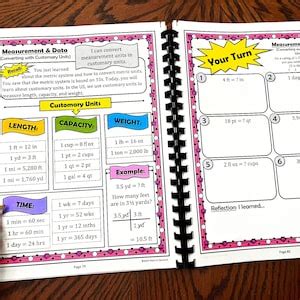 Measurement & Data
(Converting with Customary Units)
I can convert
measurement units in
customary units.
You just learned
about the metric system and how to convert metric units.
You saw that the metric system is based on 10s. Today, you will
learn about customary units. In the US, we use customary units to
measure length, capacity, and weight.
Customary Units
LENGTH:
1 ft = 12 in
1 yd = 3 ft
1 mi = 5,280 ft
1 mi = 1,760 yd
CAPACITY:
1 cup = 8 fl oz
1 pt = 2 cups
1 qt = 2 pt
1 gal = 4 qt
WEIGHT:
1 lb = 16 oz
1 ton = 2,000 lb
Example:
3.5 yd = ? ft
How many feet are
in 3 ½ yards?
3.5 yd
3 ft
1 yd
= 10.5 ft
TIME:
1 min = 60 sec
1 hr = 60 min
1 day = 24 hrs
1 wk = 7 days
1 yr = 52 wks
1 yr = 12 mths
1 yr = 365 days
Your Turn
Measurement
1
4 ft = ? in
2
3
18 pt = ? qt
4
5
2.5 pt = ? cups
6
Reflection: I learned...